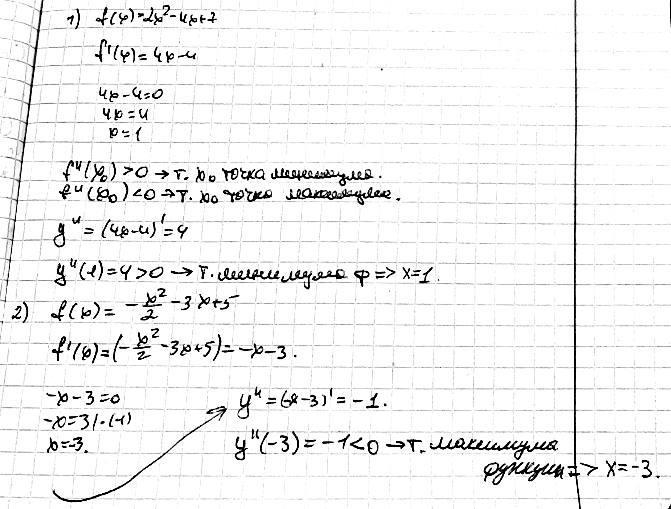 1) f(x)=2x²-4x+7
f'(x)=4x-4
4x-4=0
4x=4
x=1
f"(x₀)>0→т. x₀ точка минимума.
f"(x₀)<0→т. x₀ точка максимума.
y"=(4x-4)'=4
y"(1)=4>0→т. минимума ф=>x=1.
2) f(x)=-x²/2-3x+5
f'(x)=(-x²/2-3x+5)=-x-3.
-x-3=0
-x=3|·(-1)
x=-3.
y"=(-x-3)'=-1.
y"(-3)=-1<0→т. максимума
функции=>x=-3.